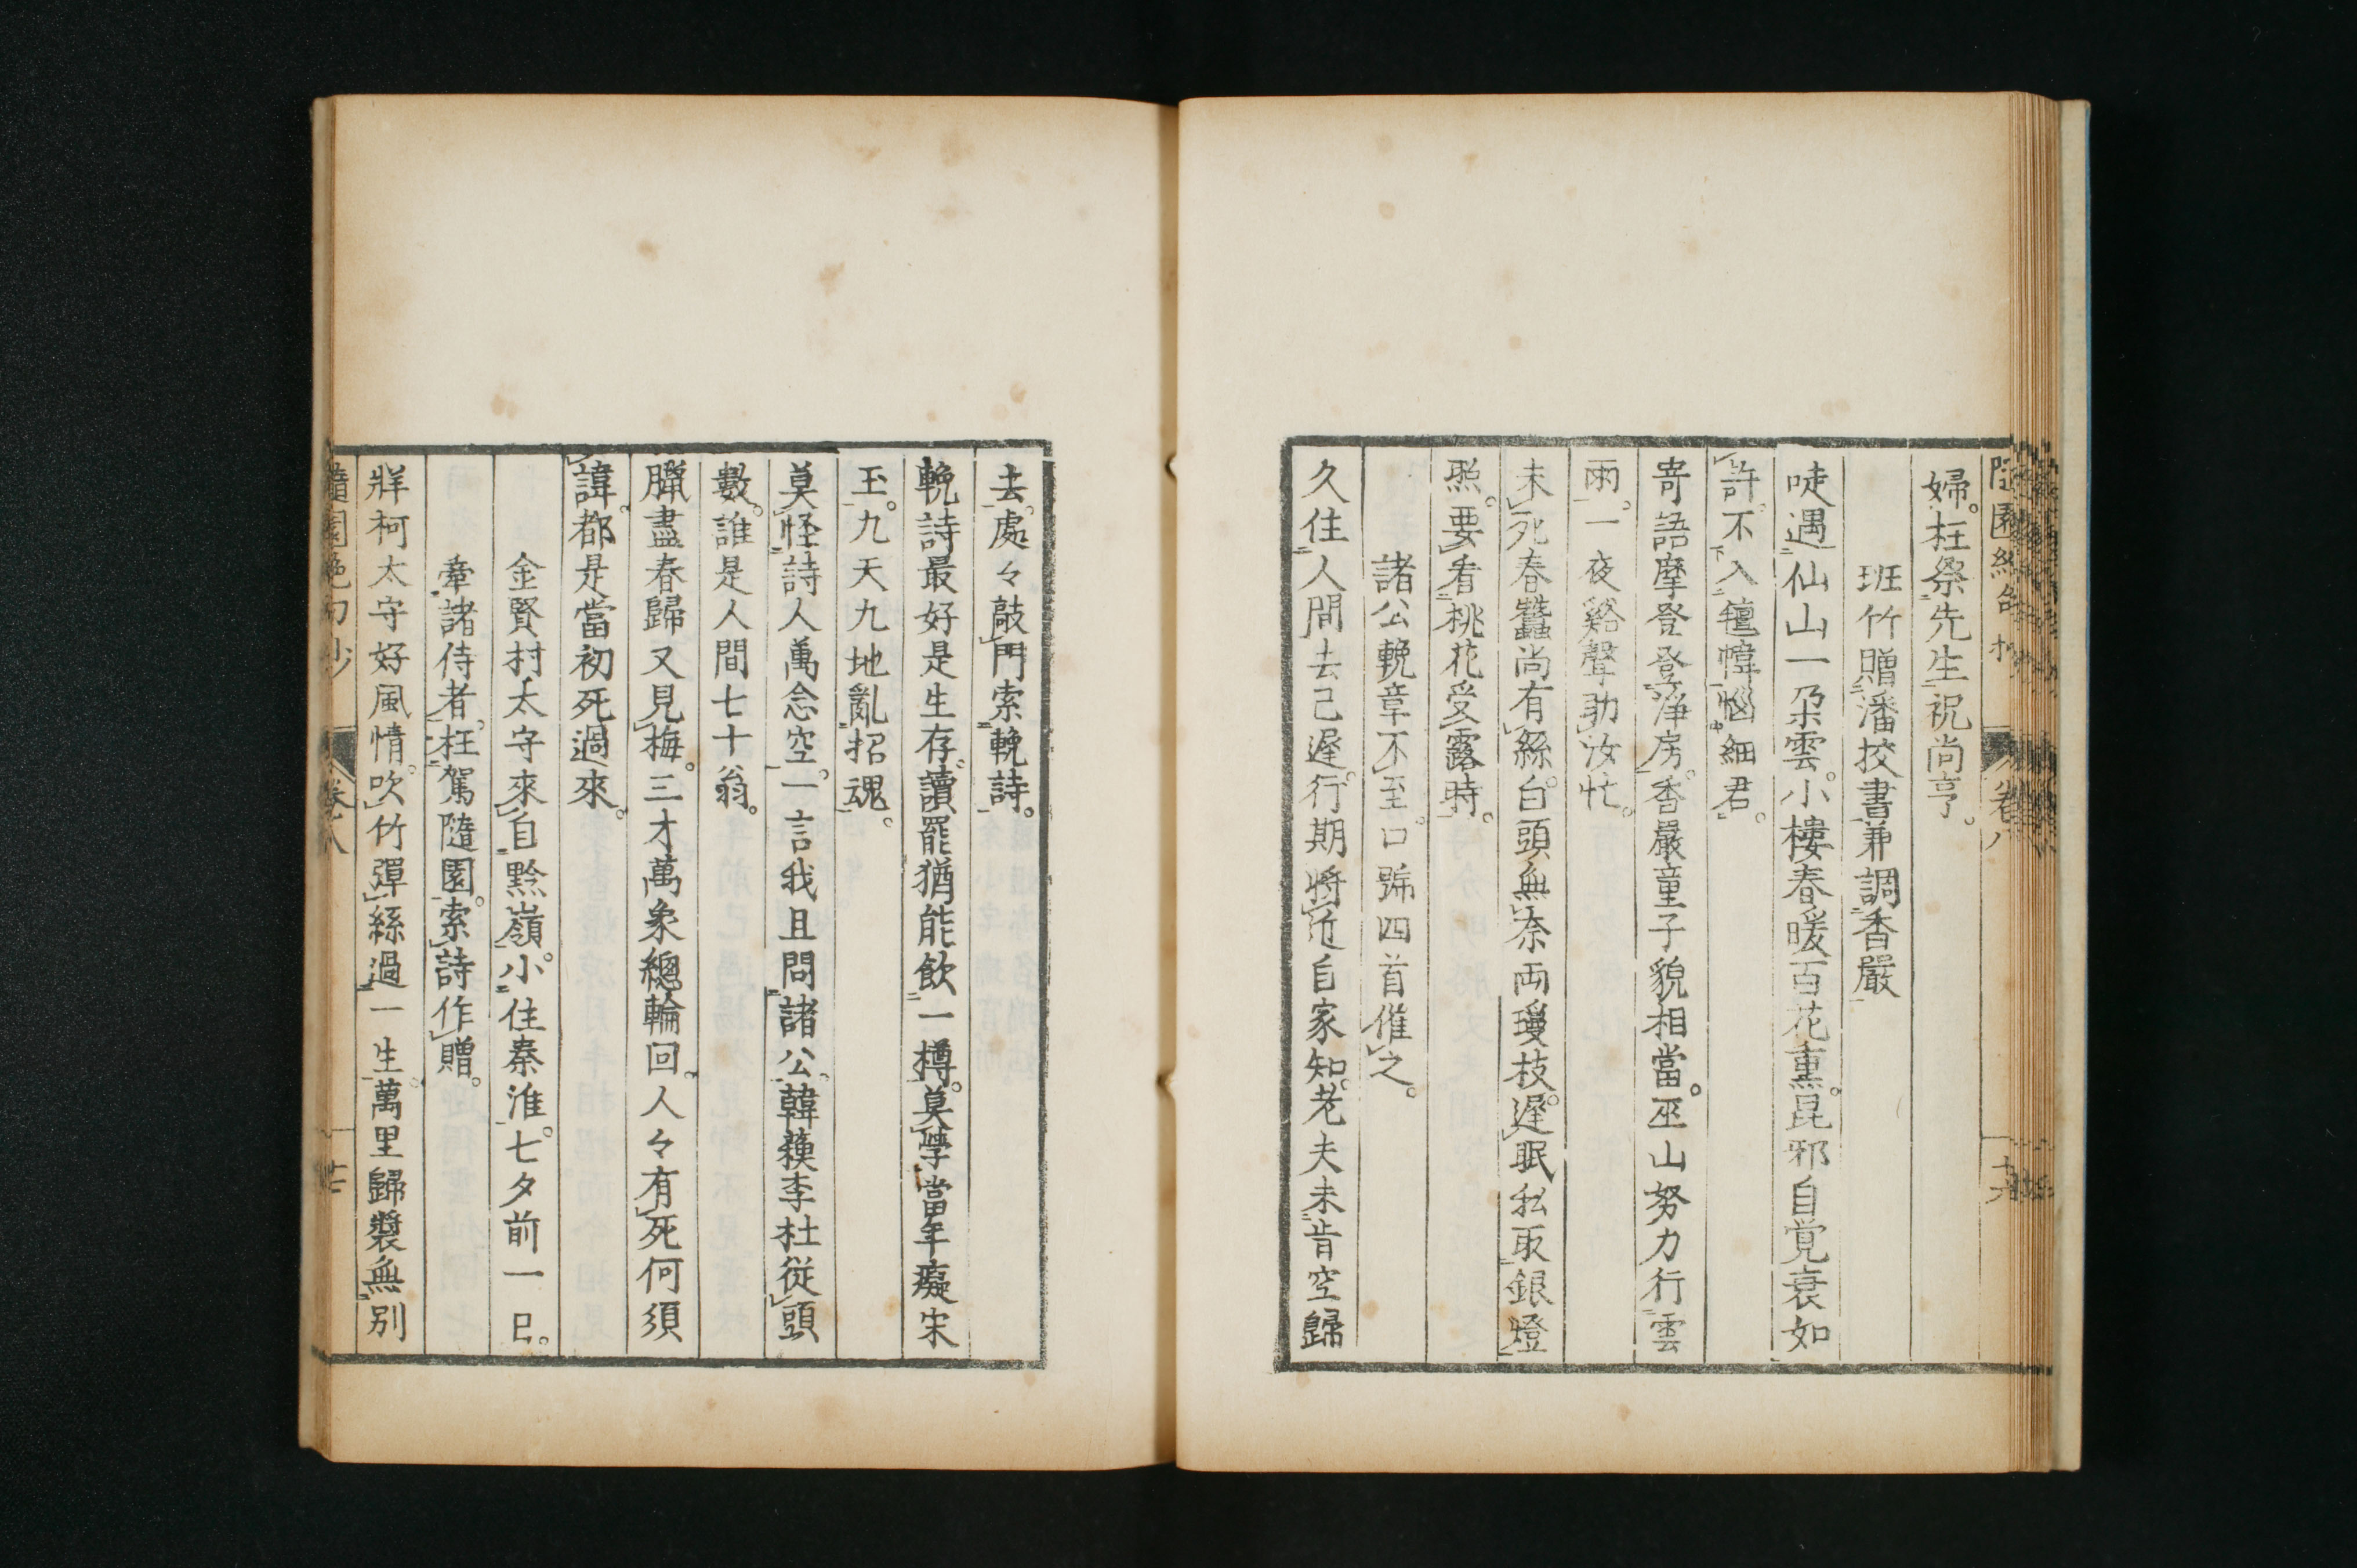 婦。枉祭先生祝尚亨。
班竹贈潘挍書兼調香嚴
唗遇仙山一朶雲。小樓春暖百花熏。昆邪自覚衰如
許。不入氊幃惱細君。
寄語摩登登淨房。香嚴童子貌相當。巫山努力行雲
雨。一夜谿聲助汝忙。
未死春蠶尚有絲。白頭無奈兩瓊枝。遲眠私取銀燈
照。要看桃花受露時。
諸公輓章不至口號四首催之。
久住人間去已遲。行期將近自家知。老夫未肯空歸
去。處々敲門索輓詩。
輓詩最好是生存。讀罷猶能飲一樽。莫學當年癡宋
玉。九天九地亂招魂。
莫怪詩人萬念空。一言我且問諸公。韓蘓李杜従頭
數。誰是人間七十翁。
臘盡春歸又見梅。三才萬象總輪回。人々有死何須
諱。都是當初死過來。
金賢村太守來自黔嶺。小住秦淮。七夕前一日。
牽諸侍者。枉駕隨園。索詩作贈。
牂柯太守好風情。吹竹彈絲過一生。萬里歸裝無別
隨園絶句抄 卷八 廿